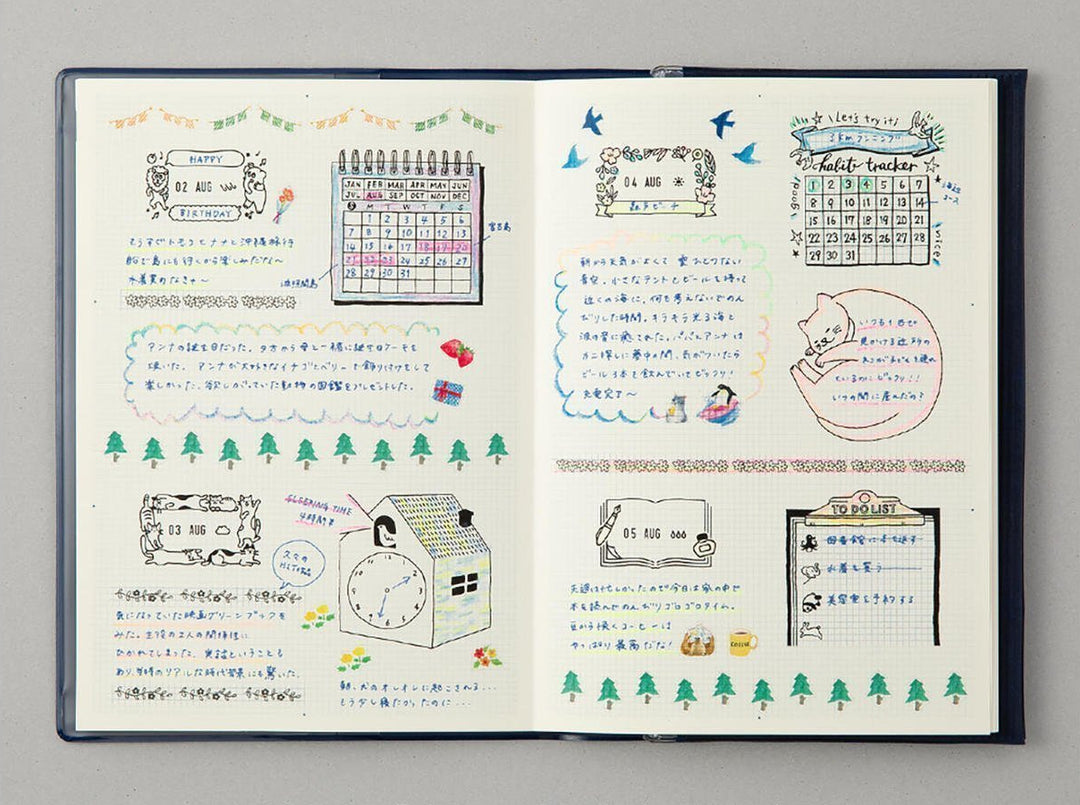 HAPPY
02 AUG
BIRTHDAY
もうすぐトモコとナナと沖縄旅行
船で島にも行くから楽しみだな〜
水着買わなきゃ〜
JAN FEB MAR APR MAY JUN
JUL AUG SEP OCT NOV DEC
S M T W T F S
1 2 3 4 5 6
7 8 9 10 11 12 13
14 15 16 17 18 19 20
21 22 23 24 25 26 27
28 29 30 31
宮古島
アンナの誕生日だった。夕方から愛と一緒に誕生日ケーキを
焼いた。アンナが大好きなイチゴとベリーで飾りつけをして
楽しかった。欲しがっていた動物の図鑑をプレゼントした。
03 AUG
久々の
SLEEPING TIME
4時間
12 1 2 3 4 5 6 7 8 9 10 11
気になっていた映画グリーンブックを
みた。主役の2人の関係性に
ひかれてしまった。実話ということも
あり、当時のリアルな時代背景にも驚いた。
朝、犬のオレオレに起こされる...
もう少し寝たかったのに...
04 AUG
森戸ビーチ
朝から天気がよくて 雲ひとつない
青空。小さなテントとビールを持って
近くの海に。何も考えないでのん
びりした時間。キラキラ光る海と
波の音に癒された。パパとアンナは
カニ探しに夢中の間、気がついたら
ビール3本を飲んでいてビックリ!
充電完了〜
Let's try it!
3kmランニング
habit tracker
good!
1 2 3 4 5 6 7
8 9 10 11 12 13 14
15 16 17 18 19 20 21
22 23 24 25 26 27 28
29 30 31
海辺
コース
nice!
いつも1匹で
見かける近所の
ネコが子どもを連れ
ているのにビックリ!!
いつの間に産んだの?
05 AUG
天週は忙しかったので今日は家の中で
本を読んでのんびりゴロゴロタイム。
豆から挽くコーヒーは
やっぱり最高だな!
COFFEE
TO DO LIST
図書館に本を返す
水着を買う
美容室を予約する